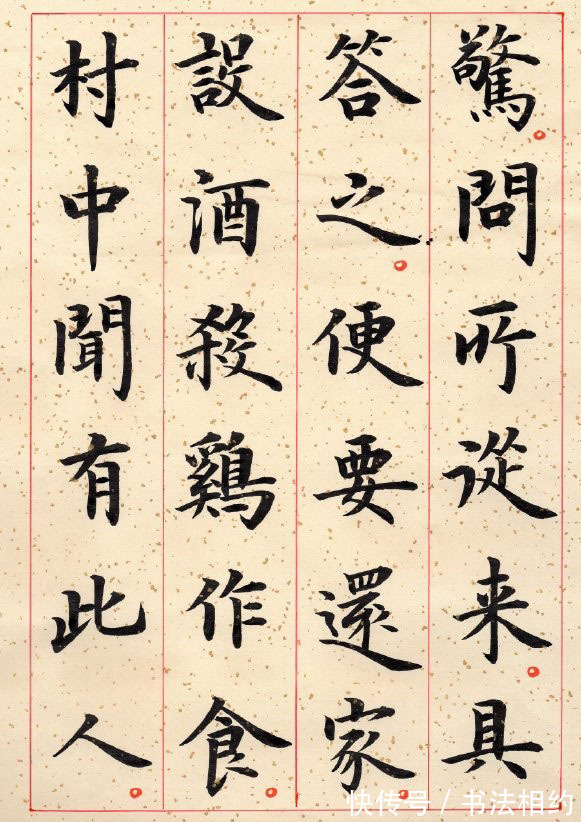 驚問所從来具
答之便要還家
設酒殺鷄作食
村中聞有此人
快传号 / 书法相约